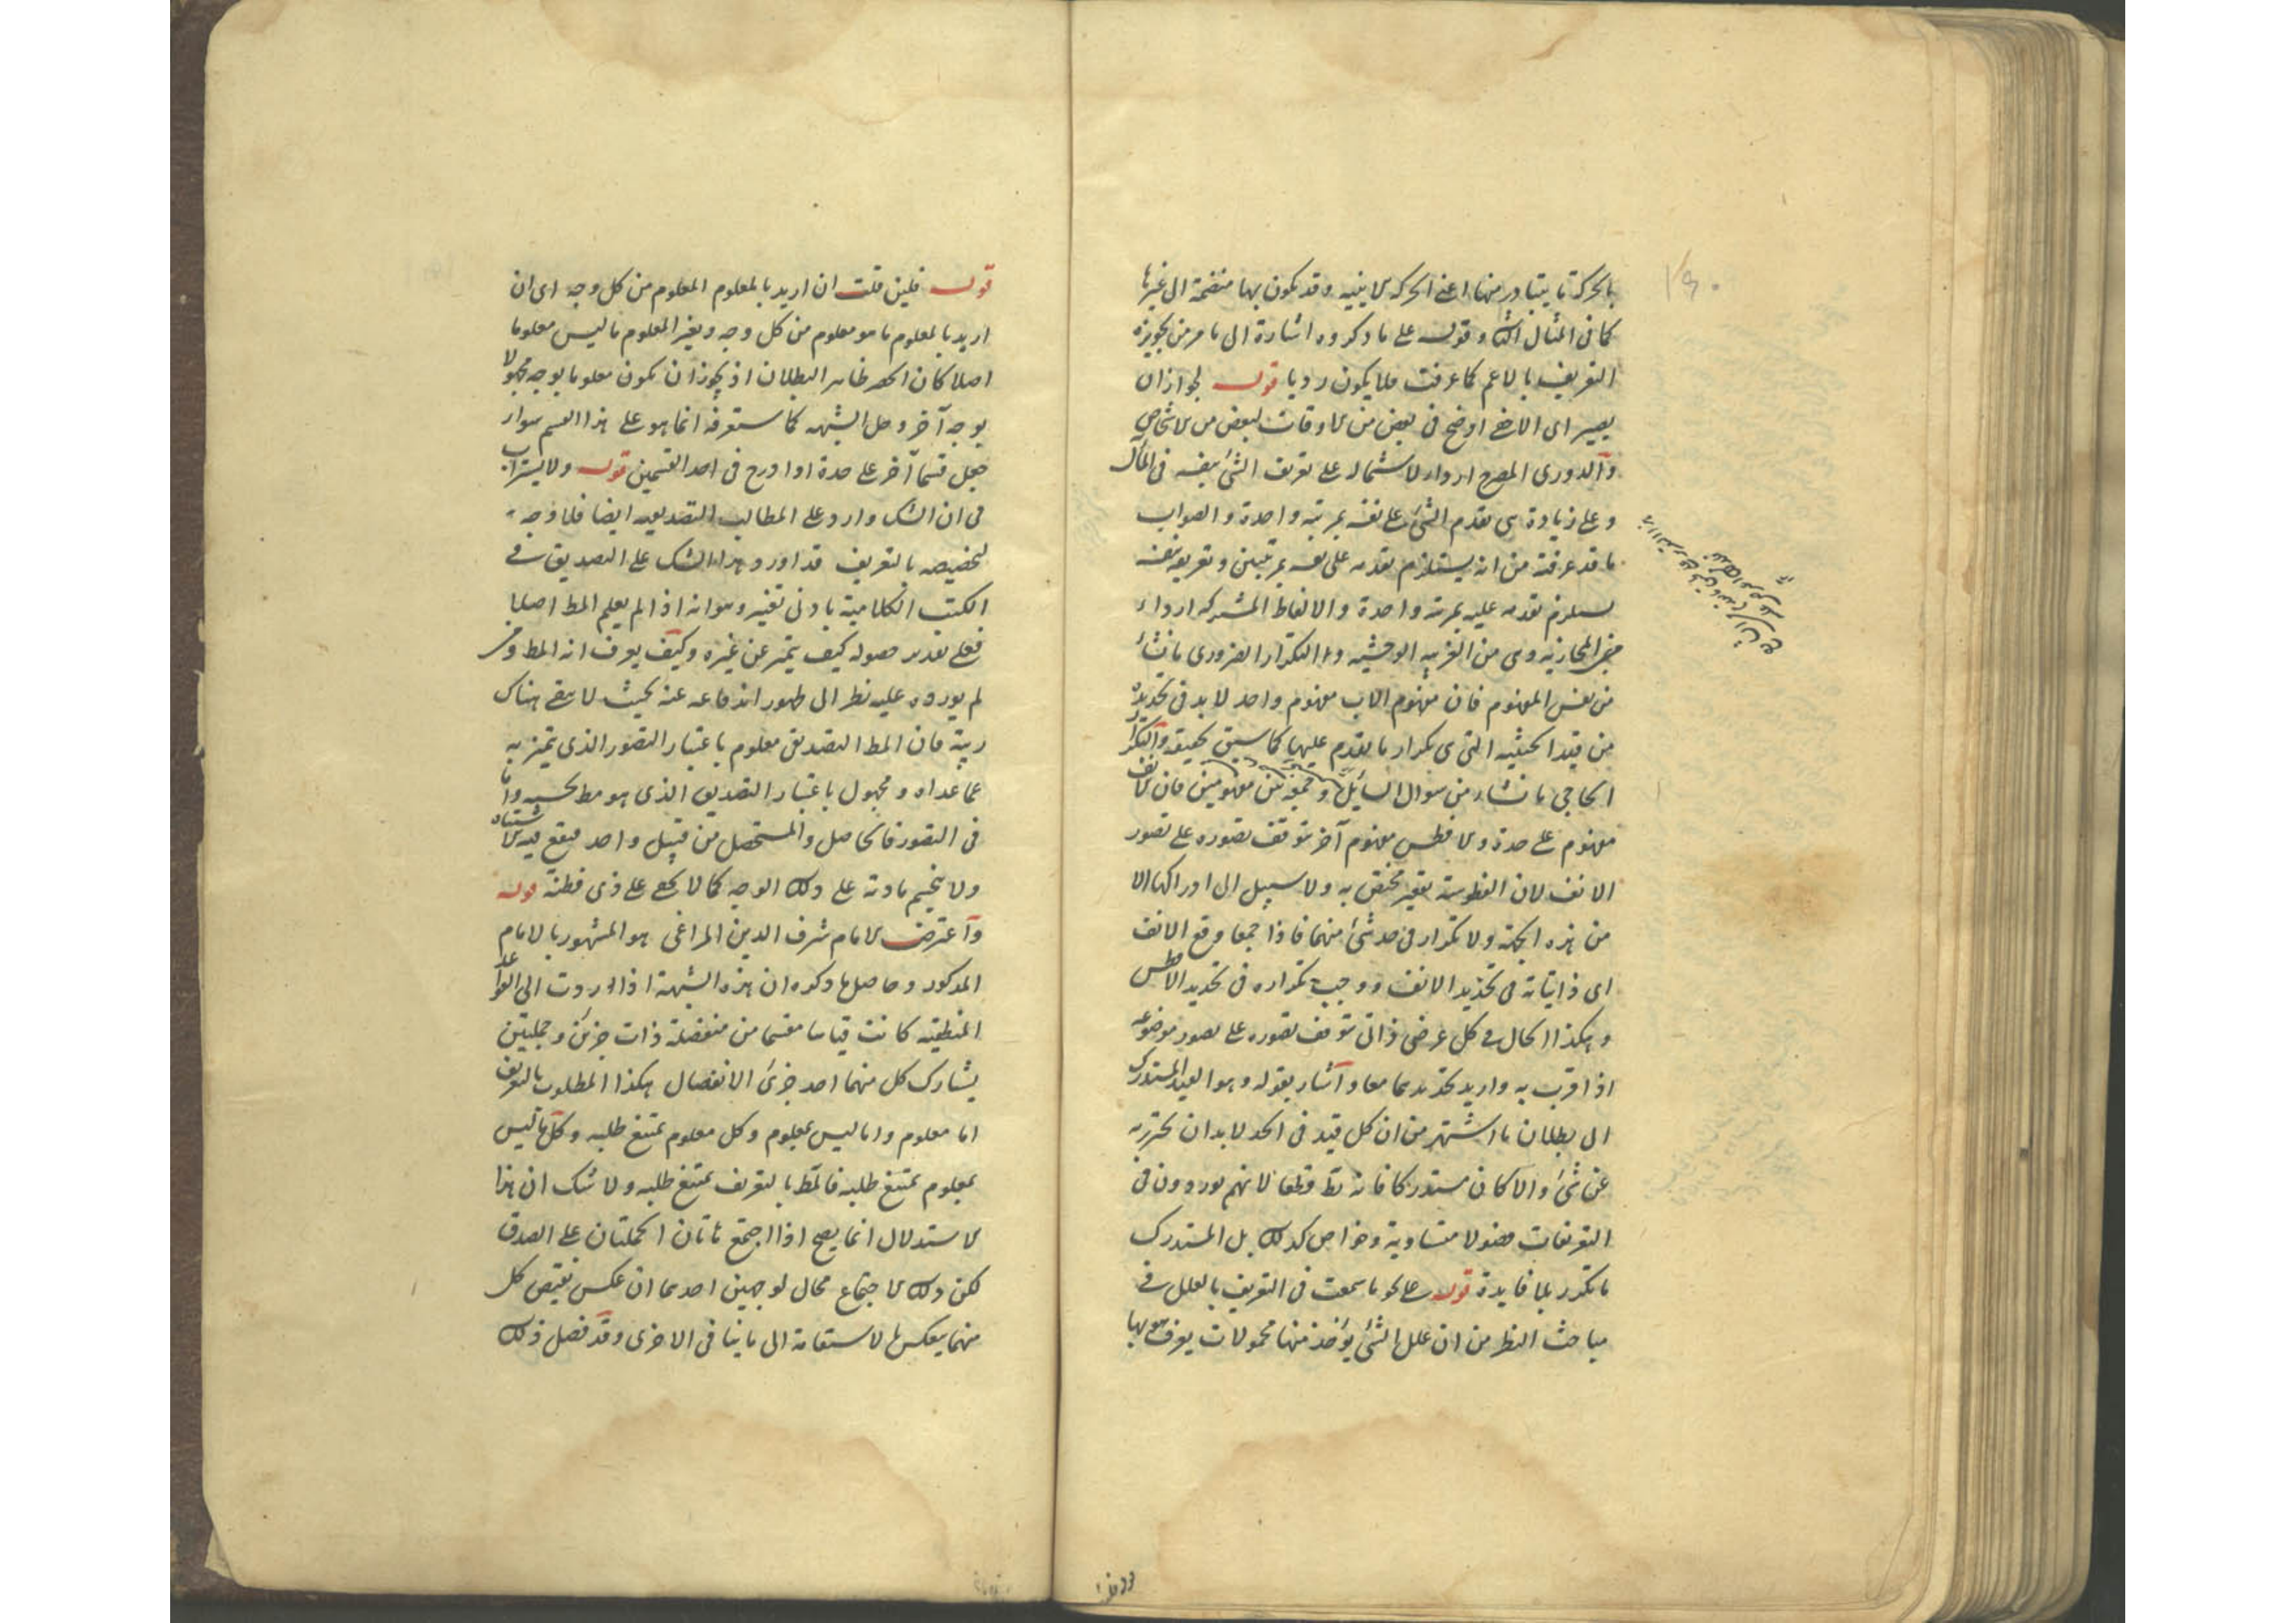 بالحركة ما يتبادر منها اعنى الحركة الاينية وقد يكون بها منضمة الى غيرها
كما فى المثال الثانى وقوله على ما ذكروه اشارة الى ما مر من تجويزه
التعريف بالاعم كما عرفت فلا يكون رديا قوله لجواز ان
يصير اى الاخفى اوضح فى بعض من الاوقات لبعض من الاشخاص
والدورى المصرح اردا لاشتماله على تعريف الشئ بنفسه فى المآل
وعلى زيادة هى تقدم الشئ على نفسه بمرتبة واحدة والصواب
ما قد عرفته من انه يستلزم تقدمه على نفسه بمرتبتين وتعريفه بنفسه
يستلزم تقدمه عليه بمرتبة واحدة والالفاظ المشتركة اردا
من المجازية وهى من الغريبة الوحشية والتكرار الضرورى ما نشأ
من نفس المفهوم فان مفهوم الاب مفهوم واحد لا بد فى تحديده
من قيد الحيثية التى هى تكرار ما تقدم عليها كما سبق تحقيقه والتكرار
الحاجى ما نشاء من سؤال السائل وجمعه بين مفهومين فان الانف
مفهوم على حدة والافطس مفهوم آخر يتوقف تصوره على تصور
الانف لان الفطوسة تقعير مختص به ولا سبيل الى ادراكها الا
من هذه الجهة ولا تكرار فى حد شئ منهما فاذا جمعا وقع الانف
اى ذاتياته فى تحديد الانف ووجب تكراره فى تحديد الافطس
وهكذا الحال فى كل عرضى ذاتى يتوقف تصوره على تصور موضوعه
اذا قرن به واريد تحديدهما معا واشار بقوله وهو القيد المستدرك
الى بطلان ما اشتهر من ان كل قيد فى الحد لا بد ان يحترز به
عن شئ والا كان مستدركا فانه بط قطعا لانهم يوردون فى
التعريفات فصولا متساوية وخواص كذلك بل المستدرك
ما تكرر بلا فايدة قوله على نحو ما سمعت فى التعريف بالعلل فى
مباحث النظر من ان علل الشئ يؤخذ منها محمولات يعرف هو بها
قوله فلين قلت ان اريد بالمعلوم المعلوم من كل وجه اى ان
اريد بالمعلوم ما هو معلوم من كل وجه وبغير المعلوم ما ليس معلوما
اصلا كان الحصر ظاهر البطلان اذ يجوز ان يكون معلوما بوجه مجهولا
بوجه آخر وحل الشبهة كما ستعرفه انما هو على هذا القسم سواء
جعل قسما آخر على حدة او ادرج فى احد القسمين قوله ولا يستراب
فى ان الشك وارد على المطالب التصديقيه ايضا فلا وجه
لتخصيصه بالتعريف قد اورد هذا الشك على التصديق فى
الكتب الكلامية بادنى تغير وهو انه اذا لم يعلم المط اصلا
فعلى تقدير حصوله كيف يتميز عن غيره وكيف يعرف انه المط ومن
لم يورده عليه نظر الى ظهور اندفاعه عنه بحيث لا يبقى هناك
ريبة فان المط التصديقى معلوم باعتبار التصور الذى يتميز به
عما عداه ومجهول باعتبار التصديق الذى هو مط بحسبه واما
فى التصور فالحاصل والمستحصل من قبيل واحد فيقع فيه الاشتباه
ولا ينحسم مادته على ذلك الوجه كما لا يخفى على ذى فطنة قوله
واعترض الامام شرف الدين المراغى هو المشهور بالامام
المذكور وحاصل ما ذكره ان هذه الشبهة اذا ردت الى القواعد
المنطقية كانت قياسا مقسما من منفصلة ذات جزئين وحمليتين
يشارك كل منهما احد جزئى الانفصال هكذا المطلوب بالتعريف
اما معلوم واما ليس بمعلوم وكل معلوم يمتنع طلبه وكل ما ليس
بمعلوم يمتنع طلبه فالمط بالتعريف يمتنع طلبه ولا شك ان هذا
الاستدلال انما يصح اذا اجتمع هاتان الحمليتان على الصدق
لكن ذلك الاجتماع محال لوجهين احدهما ان عكس نقيض كل
منهما ينعكس بالاستقامة الى ما ينافى الاخرى وقد فصل ذلك